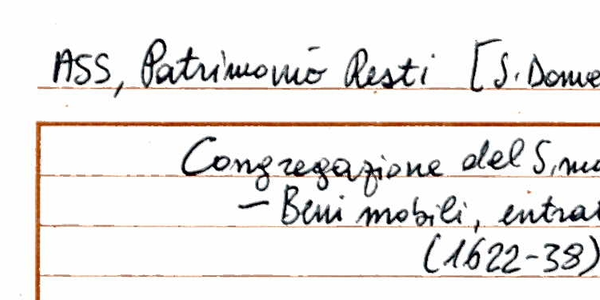 ASS, Patrimonio Resti [S. Dome
Congregazione del S.mo
– Beni mobili, entrat
(1622-38)